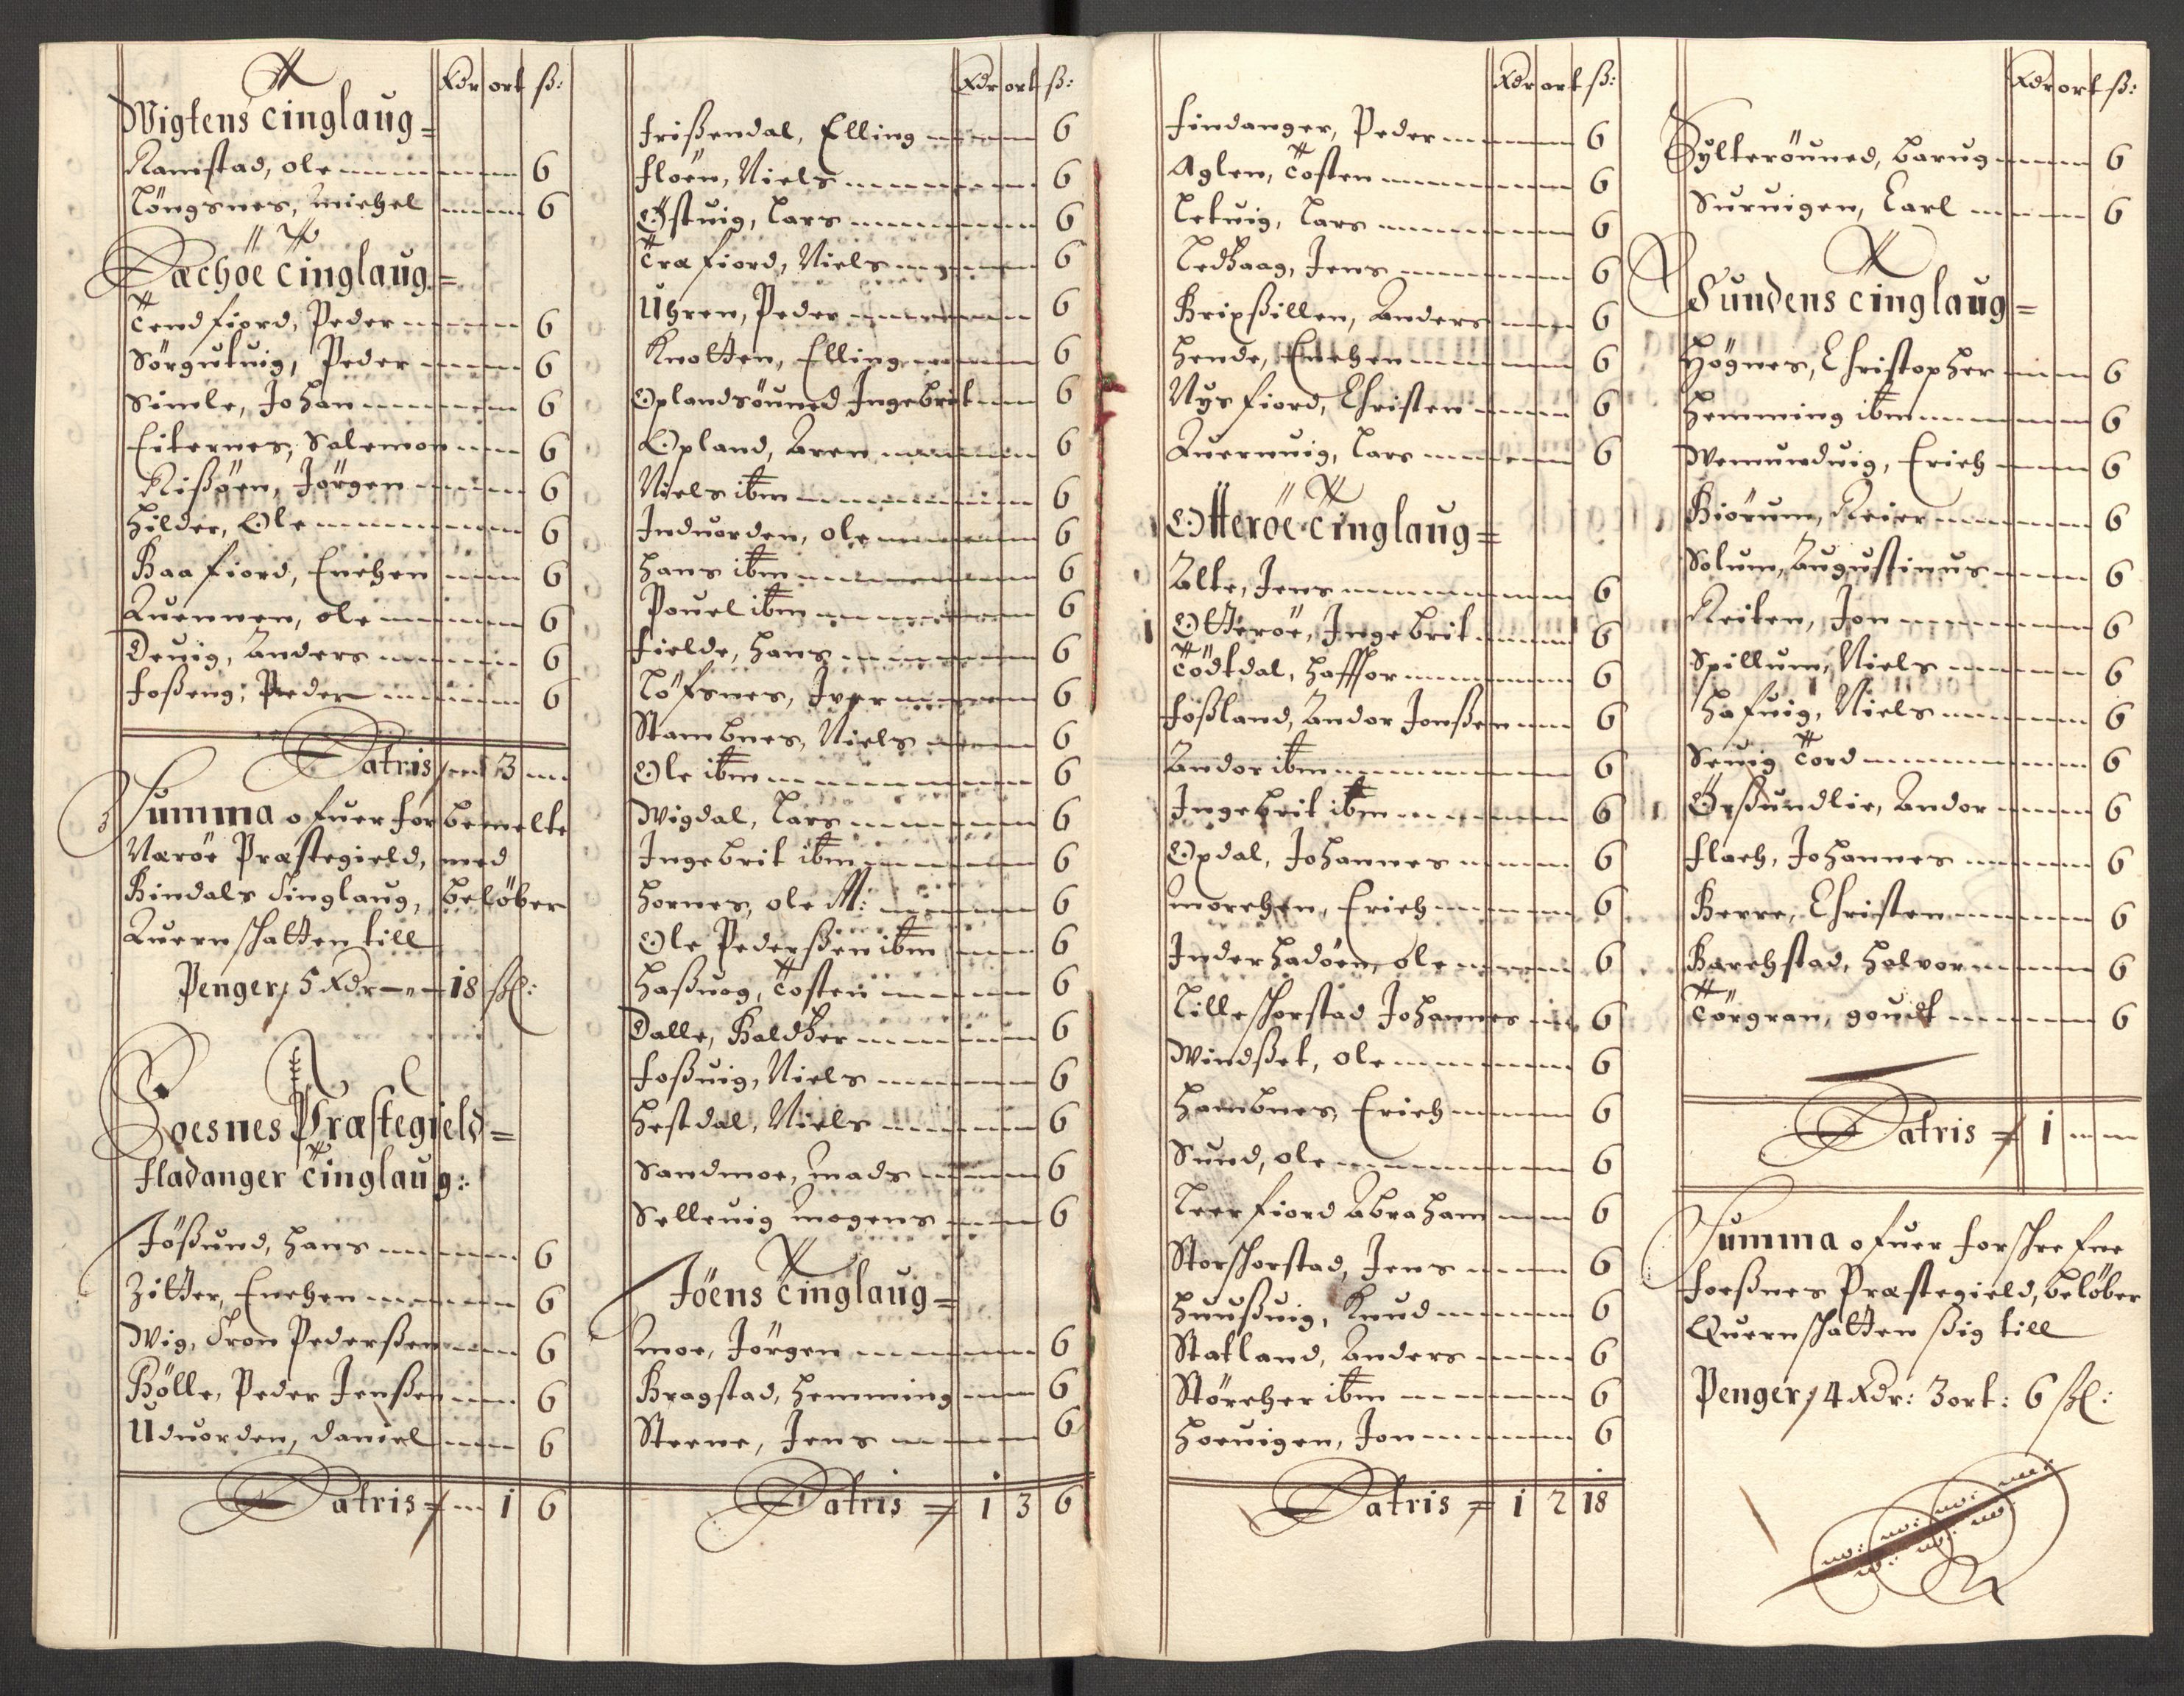 Rdr ort ß:
Wigtens Tinglaug =
Ramstad, ole 6
Löngsnes, Michel 6
Tachöe Tinglaug =
Tendfiord, Peder 6
Sörgutuig, Peder 6
Simle, Johan 6
Eiternes, Salemon 6
Rißöen, Jörgen 6
Hilder, Ole 6
Kaafiord, Enchen 6
Quennen, ole 6
Devig, Anders 6
Foßeng, Peder 6
Latris 3
Summa ofuer forbemelte
Nærøe Præstegield, med
Bindals Tinglaug, belöber
Quernschatten till
Penger / 5 Rdr — 18 ßl:
Foesnes Præstegield =
Fladanger Tinglaug:
Jößund, Hans 6
Zitter, Enchen 6
Wig, Tron Pederßen 6
Bölle, Peder Jenßen 6
Uduorden, Daniel 6
Latris = 1 6
Rdr ort ß:
Frißendal, Elling 6
Flöen, Niels 6
Østvig, Lars 6
Træfiord, Niels 6
Uhren, Peder 6
Knotten, Elling 6
Oplandsöuned Ingebrit 6
Opland, Aren 6
Niels ibm 6
Induorden, ole 6
Hans ibm 6
Pouel ibm 6
Fielde, Hans 6
Löfsnes, Iver 6
Stambnes, Niels 6
Ole ibm 6
Wigdal, Lars 6
Ingebrit ibm 6
Hornes, ole M: 6
Ole Pederßen ibm 6
Haßuog, Tosten 6
Dalle, Baldßer 6
Foßuig, Niels 6
Hestdal, Niels 6
Sandmoe, Mads 6
Selleuig Mogens 6
Jöens Tinglaug =
Moe, Jörgen 6
Bragstad, Hemming 6
Steene, Jens 6
Latris = 1 3 6
Rdr ort ß:
Findanger, Peder 6
Aglen, Tosten 6
Letuig, Lars 6
Ledhaag, Jens 6
Kripßillen, Anders 6
Hende, Enchen 6
Nysfiord, Christen 6
Quernuig, Lars 6
Otterøe Tinglaug =
Alte, Jens 6
Otterøe, Ingebrit 6
Tödtdal, Haffor 6
Foßland, Andor Jonßen 6
Andor ibm 6
Ingebrit ibm 6
Opdal, Johannes 6
Morchen, Erich 6
Inderhadöen, ole 6
Lilleschorstad Johannes 6
Windßet, ole 6
Hambnes, Erich 6
Sund, ole 6
Leerfiord Abraham 6
Storschorstad, Jens 6
Huußuig, Knud 6
Statland, Anders 6
Störcher ibm 6
Hoeuigen, Jon 6
Latris = 1 2 18
Rdr ort ß:
Sylteröuned, Barug 6
Suruigen, Carl 6
Sundens Tinglaug =
Högnes, Christopher 6
Hemming ibm 6
Wemunduig, Erich 6
Biörum, Reier 6
Solum, Augustinus 6
Reiten, Jon 6
Spillum, Niels 6
Hafuig, Niels 6
Seuig Tord 6
Ørßundlie, Andor 6
Flach, Johannes 6
Berre, Christen 6
Barchstad, Halvor 6
Törgran, goudt 6
Latris = 1
Summa ofuer forschrefne
Foeßnes Præstegield, belöber
Quernschatten ßig till
Penger / 4 Rdr: 3 ort: 6 ßl: